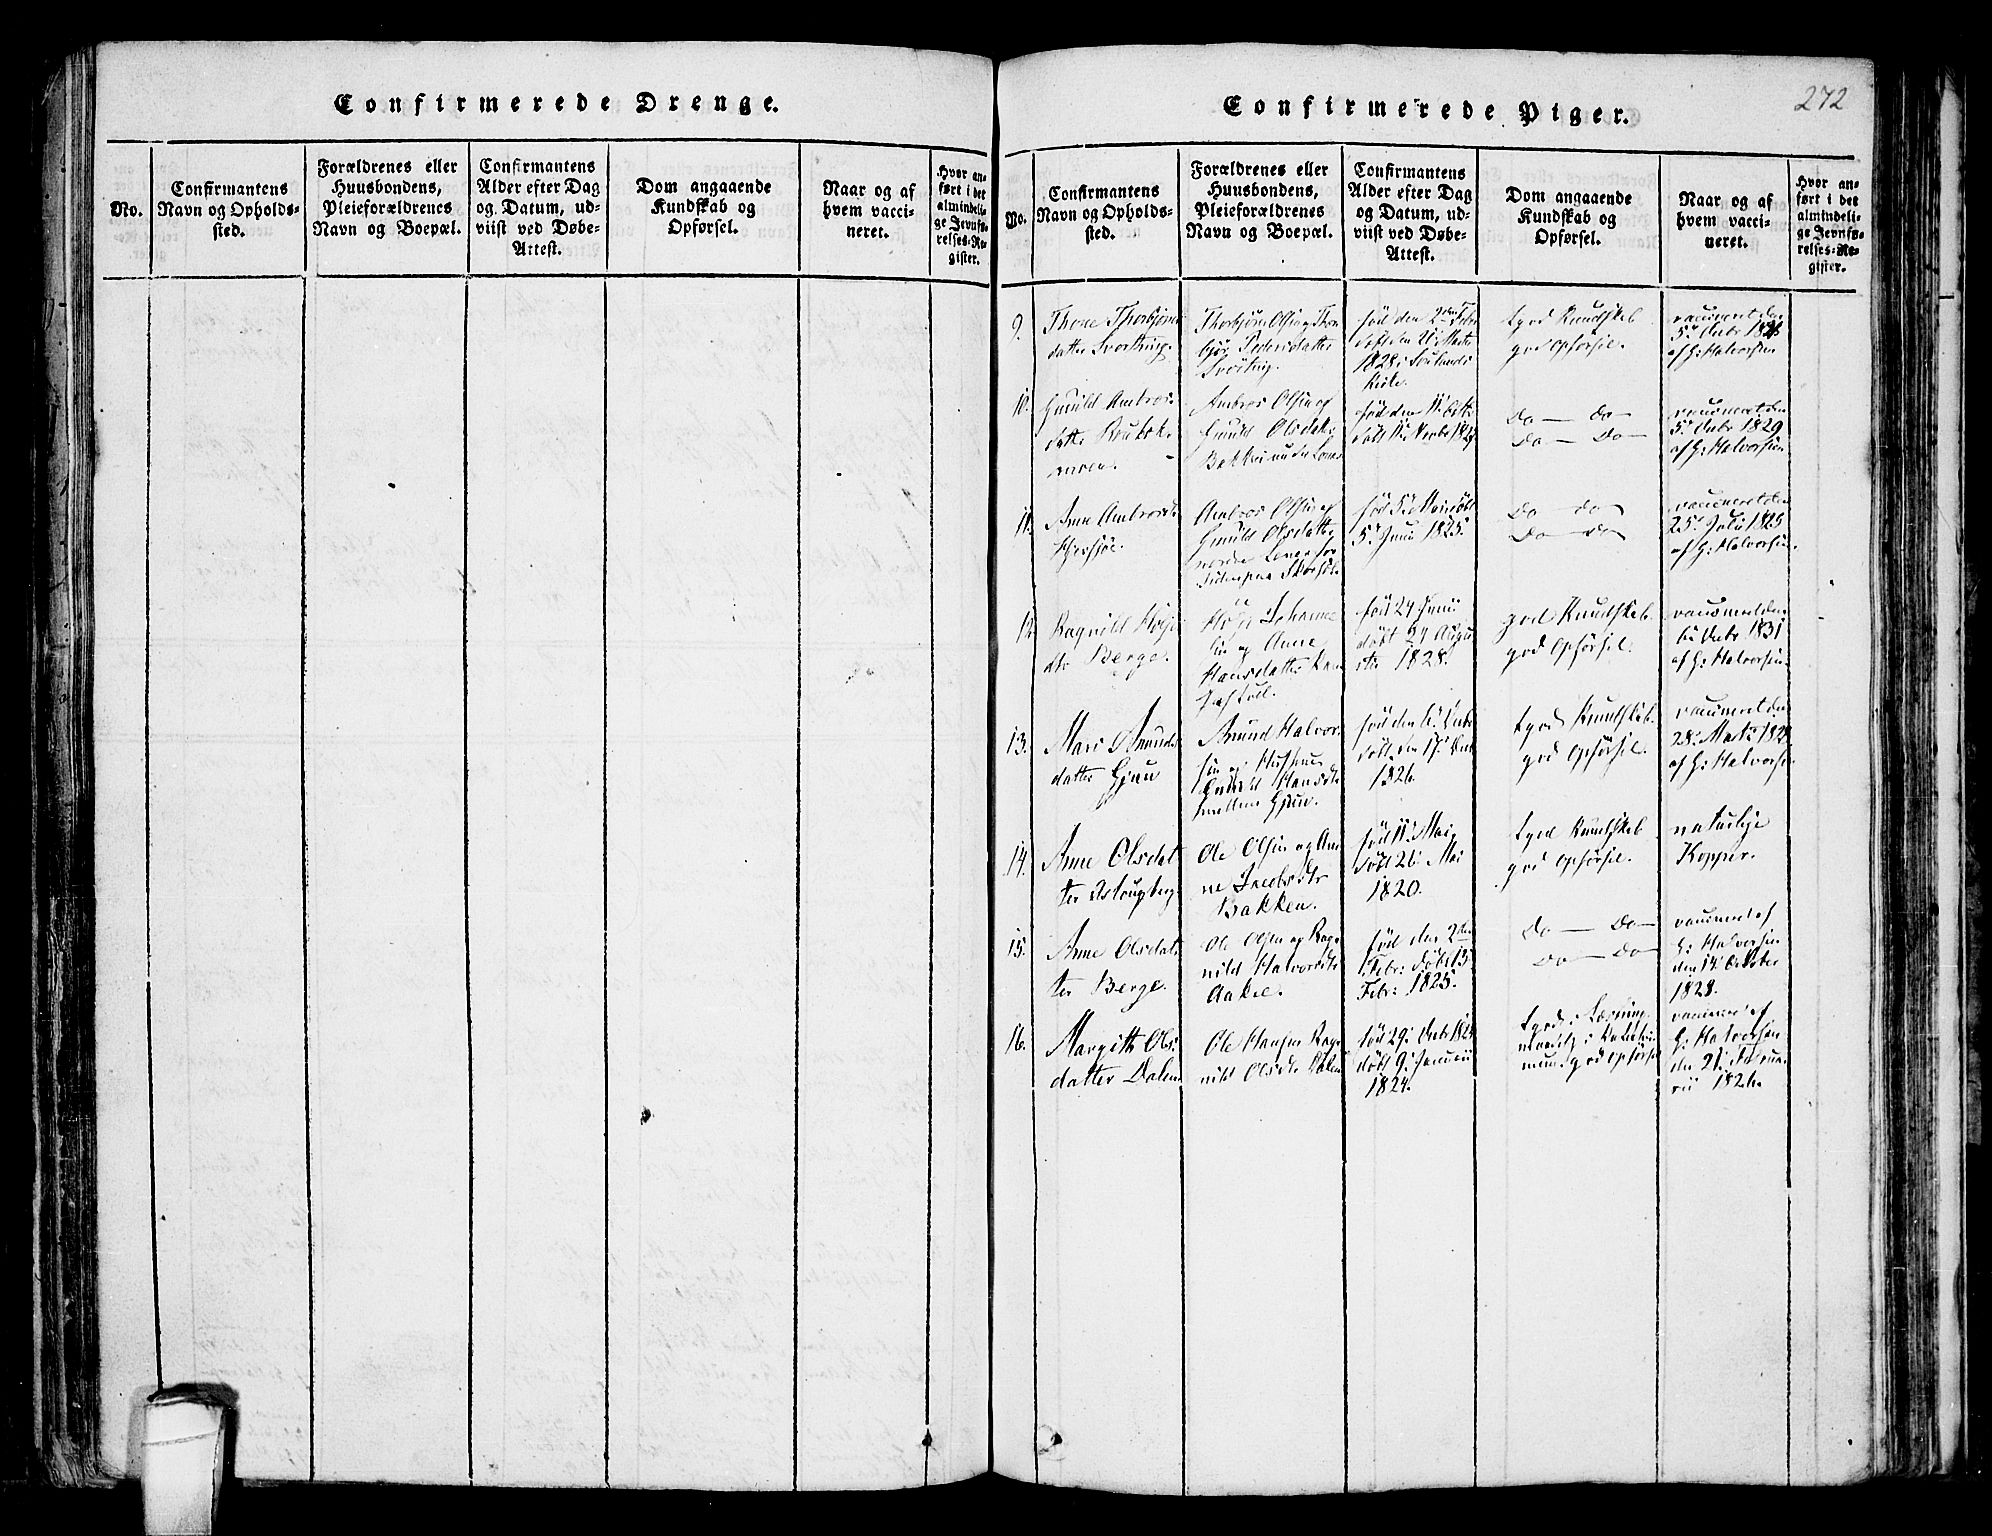 Confirmerede Drenge.
No.
Confirmantens
Navn og Opholds-
sted.
Forældrenes eller
Huusbondens,
Pleieforældrenes
Navn og Boepæl.
Confirmantens
Alder efter Dag
og Datum, ud-
viist ved Døbe-
Attest.
Dom angaaende
Kundskab og
Opførsel.
Naar og af
hvem vacci-
neret.
Hvor an-
ført i det
almindeli-
ge Jevnfø-
relses-Re-
gister.
Confirmerede Piger.
272
No.
Confirmantens
Navn og Opholds-
sted.
Forældrenes eller
Huusbondens,
Pleieforældrenes
Navn og Boepæl.
Confirmantens
Alder efter Dag
og Datum, ud-
viist ved Døbe-
Attest.
Dom angaaende
Kundskab og
Opførsel.
Naar og af
hvem vacci-
neret.
Hvor an-
ført i det
almindeli-
ge Jevnfø-
relses-Re-
gister.
9.
Thone Thorbjørns
datter
Thorbjørn Olsen og Thor
bjør Pedersdatter
født den 2den Febr
døbt den
1828 i
Kirke.
tgod Kundskab
god Opførsel.
vaccineret den
5te Decbr
af H: Halvorsen
10.
Gunild Ambros
datter
Ambros Olsen og
Gunild Olsdatter
Bakken
født den 11te
døbt
Do — Do —
Do — Do —
vaccineret den
5te Decbr 1829
af H: Halvorsen
11.
Anne Ambrosdtr
Ambros Olsen og
Gunild Olsdatter
født 5te Mai døbt
5te Juni 1825.
Do — Do
Do — Do
vaccineret den
25de Juli 1825
af H: Halvorsen.
12.
Ragnild
dtr Berge.
Johanne
sen og Anne
Hansdatter
født 24 Junii
døbt 24 Augu
sti 1828.
god Kundskab
god Opførsel.
vaccineret den
Decbr 1831
af H: Halvorsen.
13.
Mari Amunds
datter Gjuu
Amund Halvor
sen og
Gunild Hansdtr
mellem Gjuu.
født den 6te Decbr
døbt den 17de Decbr
1826
tgod Kundskab
god Opførsel.
vaccineret den
28de Marts
af H: Halvorsen
14.
Anne Olsdat
ter
Ole Olsen og An
ne Jacobsdtr
Bakken.
født 11te Mai
døbt 26de Mai
1820.
tgod Kundskab
god Opførsel.
naturlige
Kopper.
15.
Anne Olsdat
ter Berge.
Ole Olsen og Rag
nild Halvorsdtr
født den 2den
Febr: døbt 13de
Febr: 1825.
Do — Do —
Do — Do —
vaccineret af
H: Halvorsen
den 14de October
1828.
16.
Margith Ols
datter Dalen
Ole Hansen Rag
nild Olsdtr Dalen
født 29de Decbr
døbt 9de Januarii
1824.
tgod i Læsning
maadelig i
god Opførsel
vaccineret af
H: Halvorsen
den Februa
rii 1826.